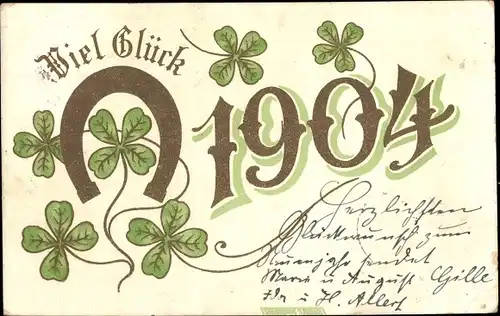 Viel Glück
1904
Herzlichsten
Glückwunsch zum
Neuenjahr sendet
Marie u August Gille
u H. Allert